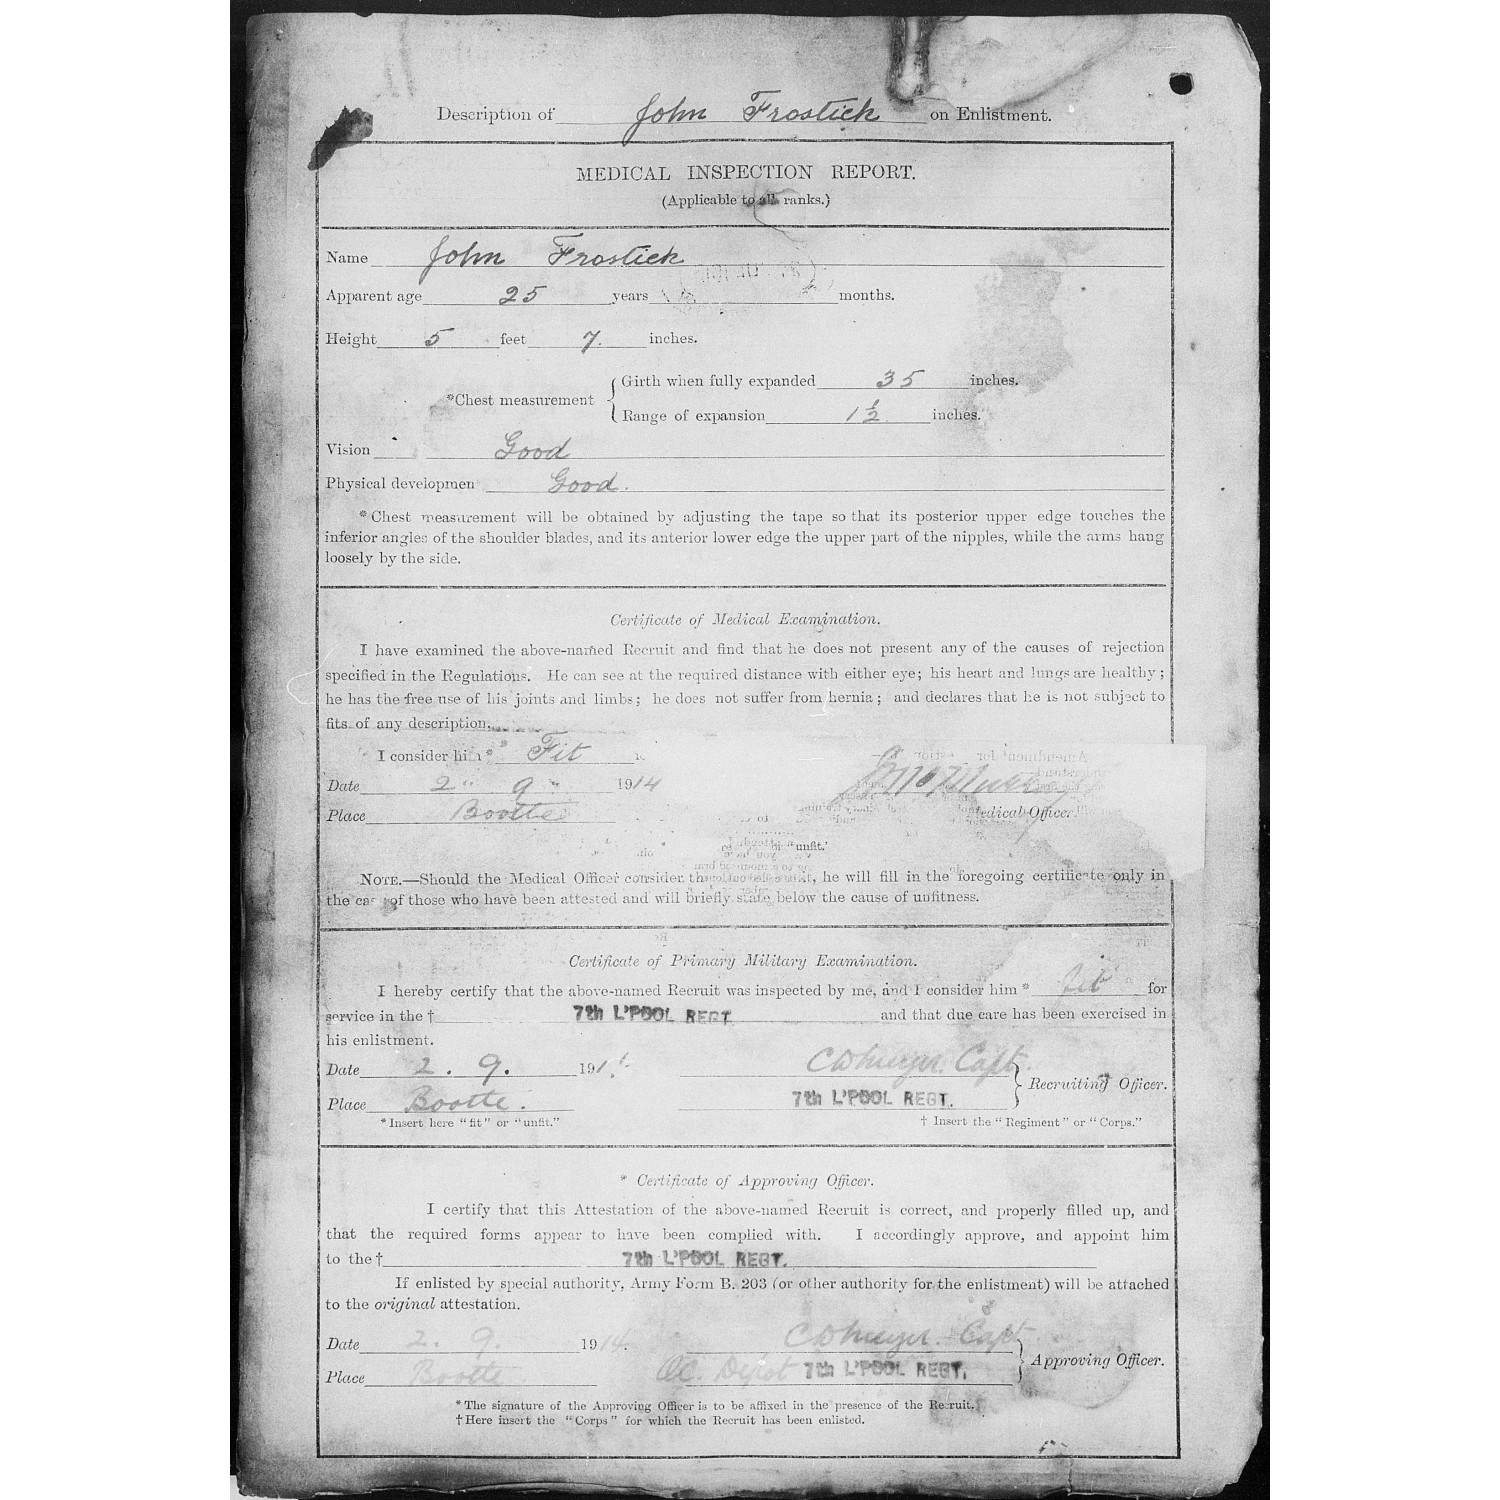 Description of John Frostick on Enlistment.
MEDICAL INSPECTION REPORT.
(Applicable to all ranks.)
Name John Frostick
Apparent age 25 years months.
Height 5 feet 7. inches.
*Chest measurement { Girth when fully expanded 35 inches.
Range of expansion 1½ inches.
Vision Good
Physical developmen Good.
* Chest measurement will be obtained by adjusting the tape so that its posterior upper edge touches the
inferior angles of the shoulder blades, and its anterior lower edge the upper part of the nipples, while the arms hang
loosely by the side.
Certificate of Medical Examination.
I have examined the above-named Recruit and find that he does not present any of the causes of rejection
specified in the Regulations. He can see at the required distance with either eye; his heart and lungs are healthy;
he has the free use of his joints and limbs; he does not suffer from hernia; and declares that he is not subject to
fits of any description.
I consider him* Fit
Date 2 " 9 " 1914
Place Bootle
Medical Officer.
"unfit."
NOTE.—Should the Medical Officer consider the unfit, he will fill in the foregoing certificate only in
the case of those who have been attested and will briefly state below the cause of unfitness.
Certificate of Primary Military Examination.
I hereby certify that the above-named Recruit was inspected by me, and I consider him * fit for
service in the † 7th L'POOL REGT and that due care has been exercised in
his enlistment.
Date 2. 9. 191 Capt.
Place Bootle. 7th L'POOL REGT. } Recruiting Officer.
*Insert here "fit" or "unfit." † Insert the "Regiment" or "Corps."
* Certificate of Approving Officer.
I certify that this Attestation of the above-named Recruit is correct, and properly filled up, and
that the required forms appear to have been complied with. I accordingly approve, and appoint him
to the † 7th L'POOL REGT.
If enlisted by special authority, Army Form B. 203 (or other authority for the enlistment) will be attached
to the original attestation.
Date 2. 9. 1914. Capt
Place Bootle OC. Depot 7th L'POOL REGT. } Approving Officer.
* The signature of the Approving Officer is to be affixed in the presence of the Recruit.
† Here insert the "Corps" for which the Recruit has been enlisted.